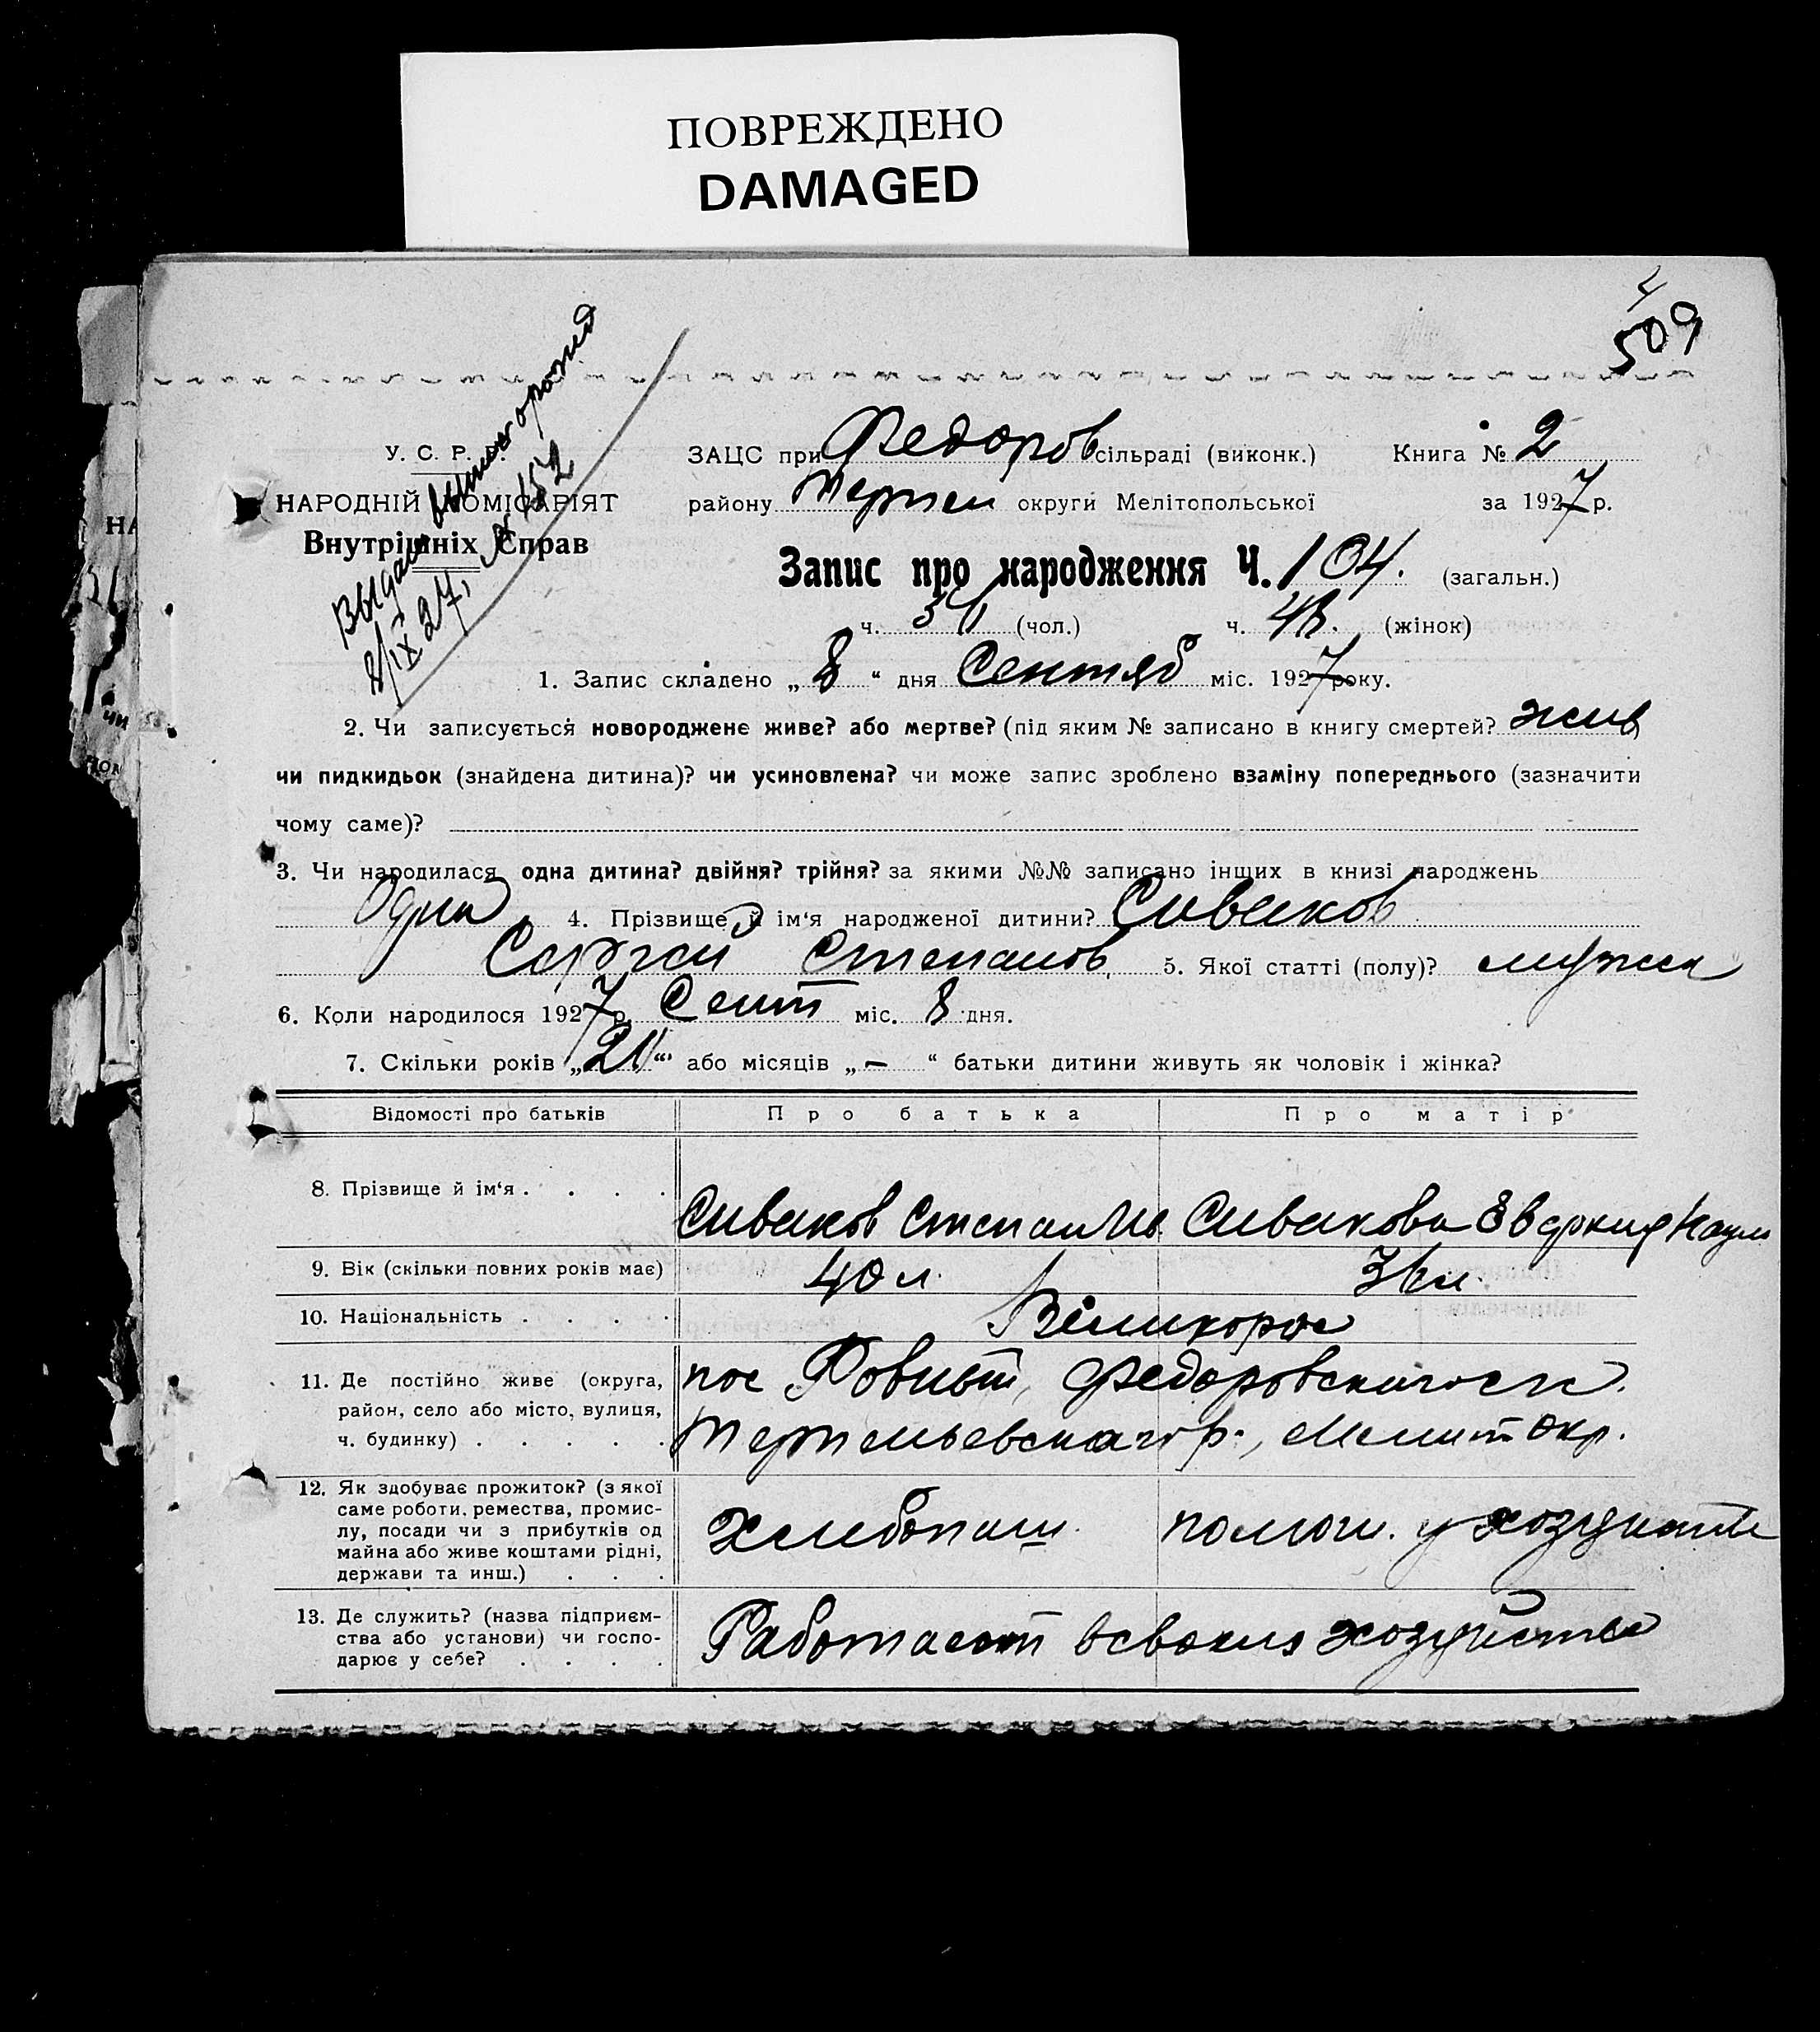 ПОВРЕЖДЕНО
DAMAGED
509
У. С. Р.
НАРОДНІЙ КОМІСАРІЯТ
Внутрішніх Справ
№ 152
ЗАЦС при Федоров сільраді (виконк.) Книга № 2
району Терпен округи Мелітопольської за 1927 р.
Запис про народження Ч. 104. (загальн.)
ч. (чол.) ч. (жінок)
1. Запис складено „ 8 “ дня Сентяб міс. 1927 року.
2. Чи записується новороджене живе? або мертве? (під яким № записано в книгу смертей? жив
чи пидкидьок (знайдена дитина)? чи усиновлена? чи може запис зроблено взаміну попереднього (зазначити
чому саме)?
3. Чи народилася одна дитина? двійня? трійня? за якими №№ записано інщих в книзі народжень
Один 4. Прізвище й ім‘я народженої дитини? Сиваков
Сергей Степанов 5. Якої статті (полу)? мужск
6. Коли народилося 1927 р. Сент міс. 8 дня.
7. Скільки років „ 21 “ або місяців „ — “ батьки дитини живуть як чоловік і жінка?
Відомості про батьків Про батька Про матір
8. Прізвище й ім‘я . . . . Сиваков Степан Ив. Сивакова Наум
9. Вік (скільки повних років має) 40 л.
10. Національність . . . . Великорос
11. Де постійно живе (округа, пос Федоровского с.
район, село або місто, вулиця,
ч. будинку) . . . . . р., Мелит окр.
12. Як здобуває прожиток? (з якої
саме роботи, ремества, промис-
лу, посади чи з прибутків од Хлебопаш. помощ. у
майна або живе коштами рідні,
держави та инш.) . . .
13. Де служить? (назва підприєм-
ства або установи) чи госпо- Работают в своем хозяйстве
дарює у себе? . . . .